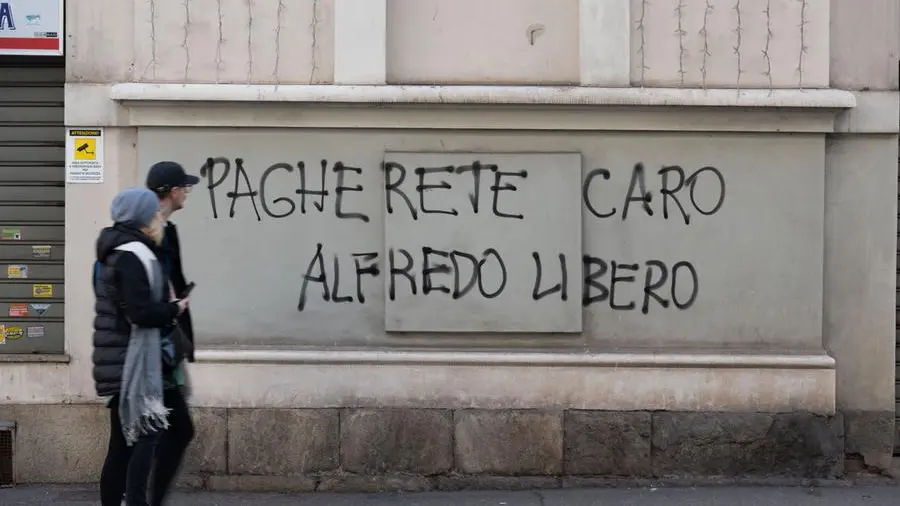 A
ATTENZIONE!
PAGHERETE CARO
ALFREDO LIBERO